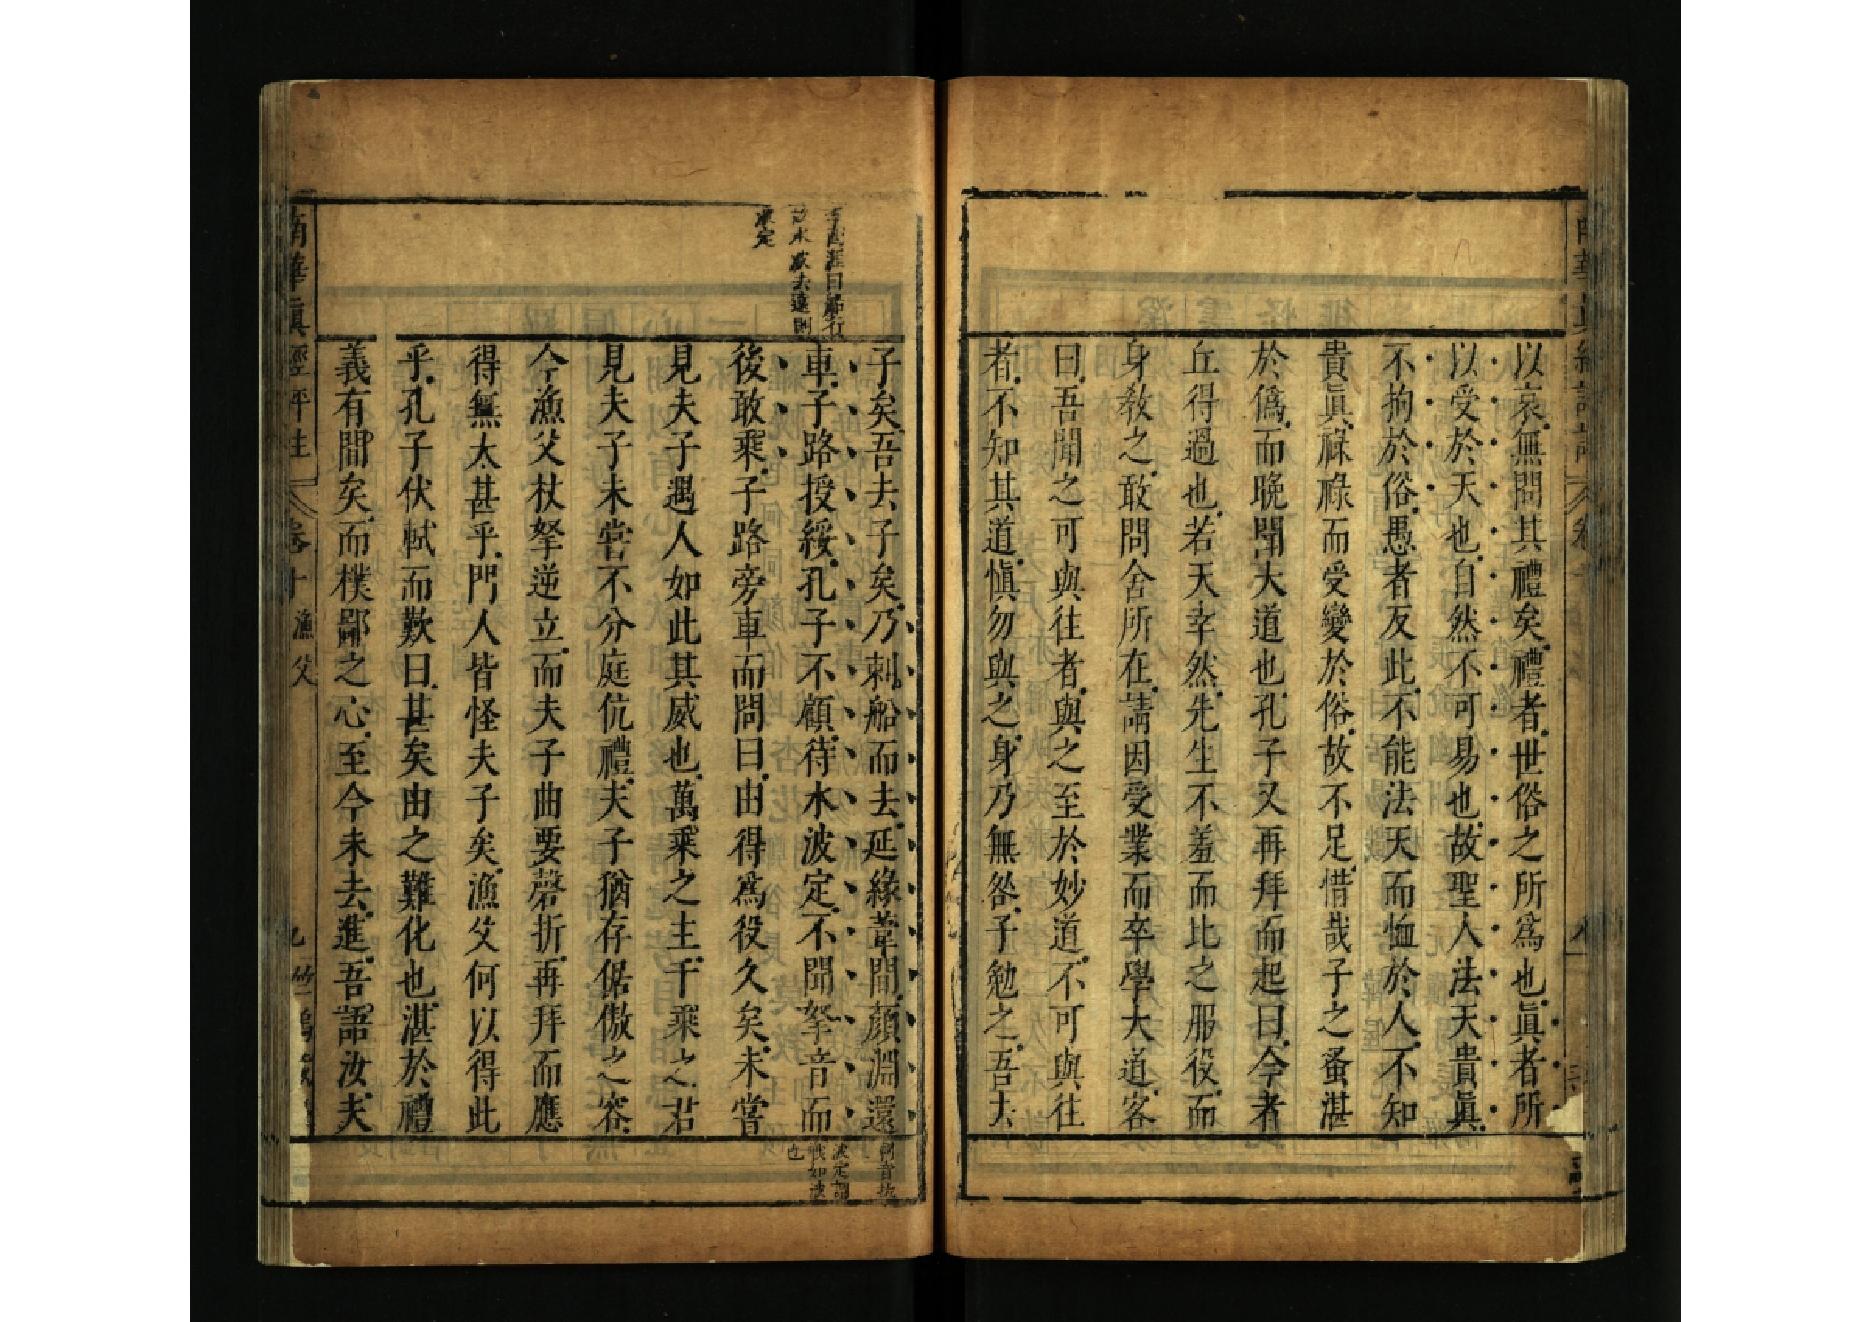 以哀無問其禮矣禮者世俗之所爲也眞者所
以受於天也自然不可易也故聖人法天貴眞
不拘於俗愚者反此不能法天而恤於人不知
貴眞祿祿而受變於俗故不足惜哉子之蚤湛
於僞而晚聞大道也孔子又再拜而起曰今者
丘得過也若天幸然先生不羞而比之服役而
身敎之敢問舍所在請因受業而卒學大道客
曰吾聞之可與往者與之至於妙道不可與往
者不知其道愼勿與之身乃無咎子勉之吾去
子矣吾去子矣乃刺船而去延緣葦間顏淵還
車子路授綏孔子不顧待水波定不聞拏音而
後敢乘子路旁車而問曰由得爲役久矣未嘗
見夫子遇人如此其威也萬乘之主千乘之君
見夫子未嘗不分庭伉禮夫子猶存倨傲之容
今漁父杖拏逆立而夫子曲要磬折再拜而應
得無太甚乎門人皆怪夫子矣漁父何以得此
乎孔子伏軾而歎曰甚矣由之難化也湛於禮
義有間矣而樸鄙之心至今未去進吾語汝夫
波定謂
戰如波
也
南華眞經評注
卷十
漁父
九